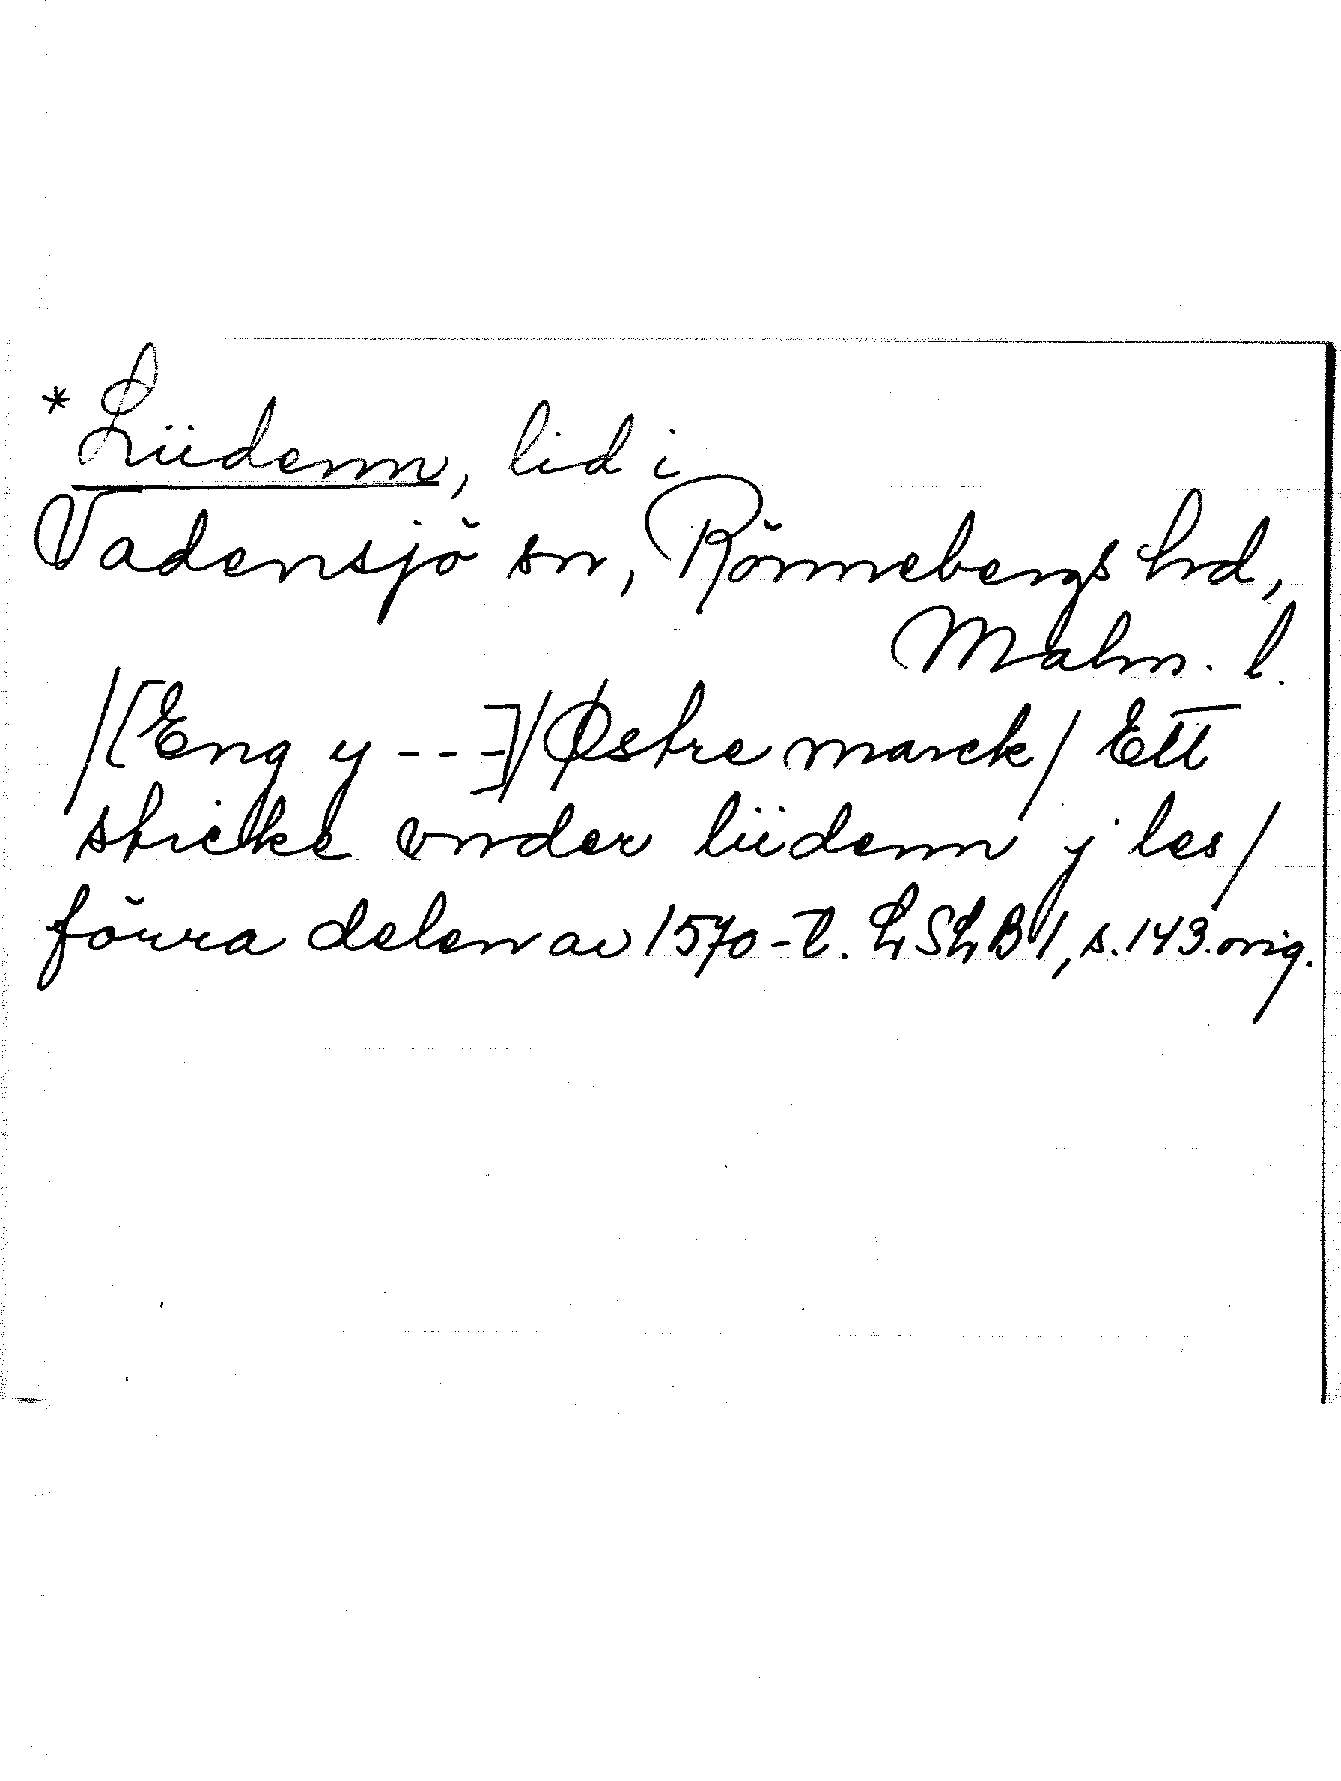 *Liidenn, lid i
Vadensjö sn, Rönnebergs hrd,
Malm. l.
/[Eng y ---]/Østre marck/ Ett
sticke vnder liidenn j les/
förra delen av 1570-t. LSLB 1, s. 143. orig.